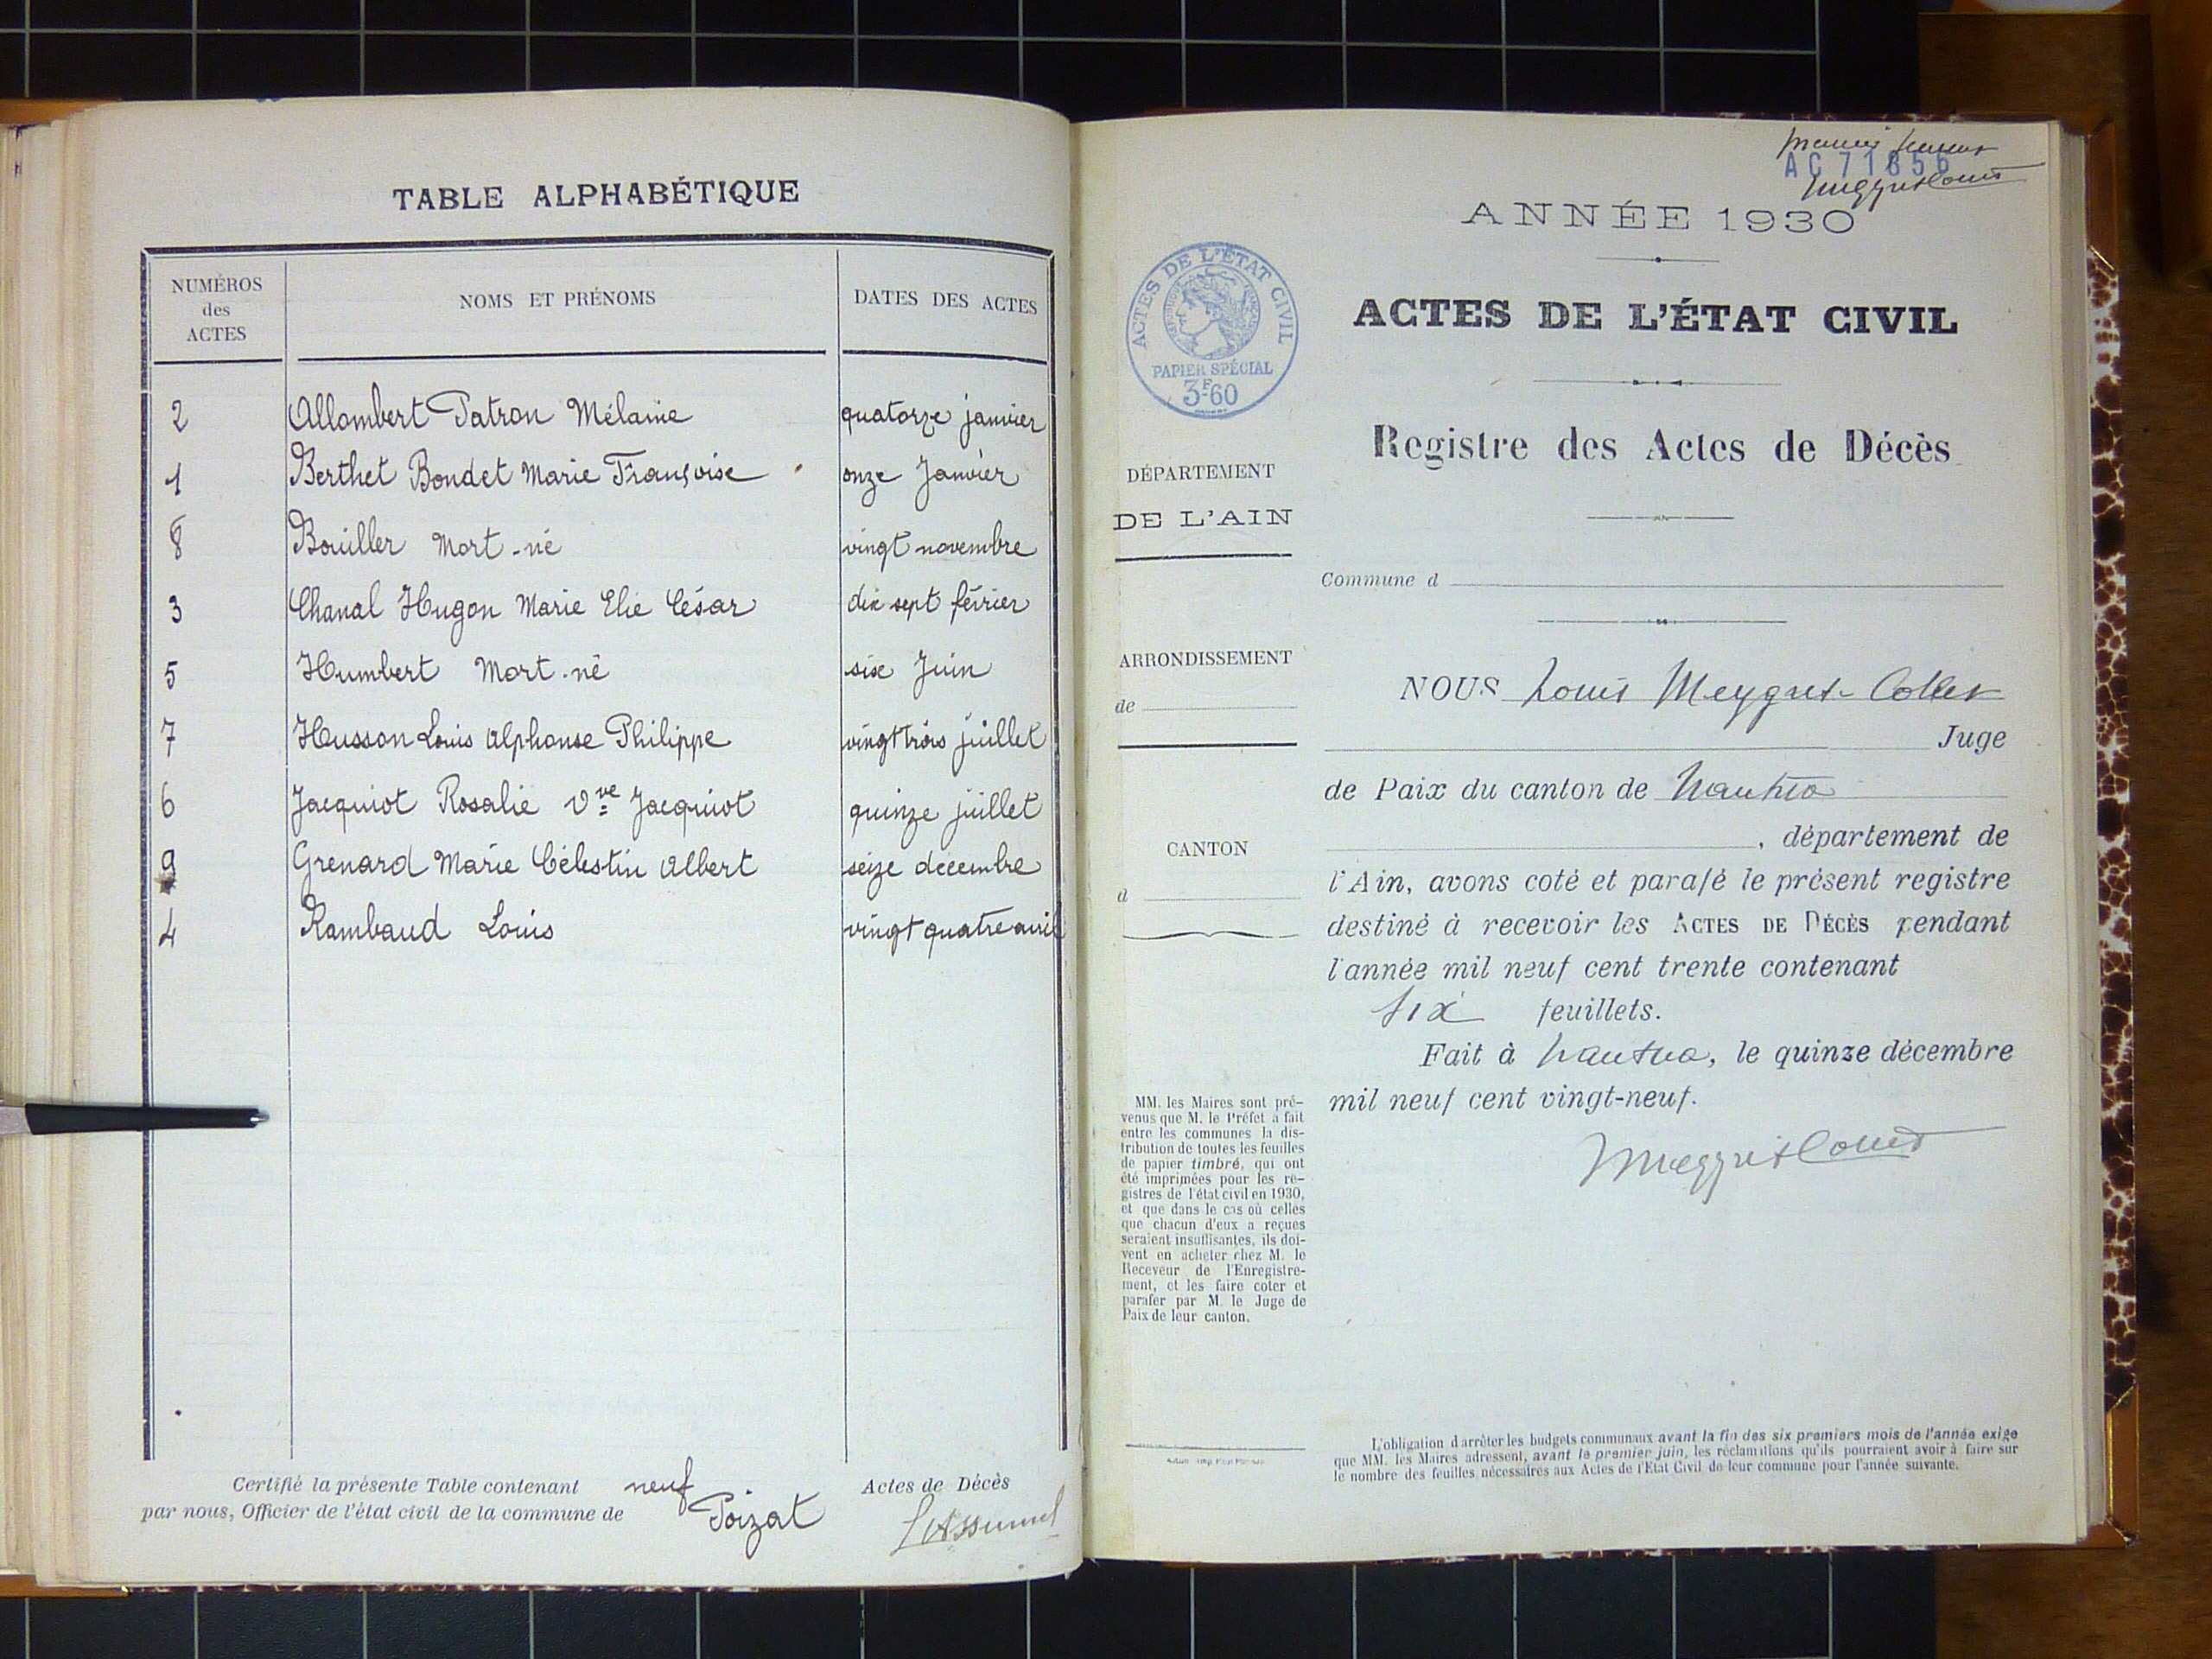 TABLE ALPHABÉTIQUE
NUMÉROS des ACTES
NOMS ET PRÉNOMS
DATES DES ACTES
2 Allombert Patron Mélanie quatorze janvier
1 Berthet Bondet Marie Françoise onze Janvier
8 Bouiller Mort-né vingt novembre
3 Chanal Hugon Marie Elie César dix sept février
5 Humbert Mort-né six Juin
7 Husson Louis Alphonse Philippe vingt trois juillet
6 Jacquiot Rosalie Vve Jacquiot quinze juillet
9 Grenard Marie Célestin Albert seize décembre
4 Rambaud Louis vingt quatre avril
Certifié la présente Table contenant neuf Actes de Décès
par nous, Officier de l'état civil de la commune de Poizat
AC 71856
ANNÉE 1930
ACTES DE L'ÉTAT CIVIL
PAPIER SPÉCIAL
3F60
ACTES DE L'ÉTAT CIVIL
Registre des Actes de Décès
DÉPARTEMENT
DE L'AIN
Commune d
ARRONDISSEMENT
de
CANTON
d
NOUS Louis Meygret-Collet
Juge
de Paix du canton de Nantua
, département de
l'Ain, avons coté et parafé le présent registre
destiné à recevoir les ACTES DE DÉCÈS pendant
l'année mil neuf cent trente contenant
six feuillets.
Fait à Nantua, le quinze décembre
mil neuf cent vingt-neuf.
MM. les Maires sont pré-
venus que M. le Préfet a fait
entre les communes la dis-
tribution de toutes les feuilles
de papier timbré, qui ont
été imprimées pour les re-
gistres de l'état civil en 1930,
et que dans le cas où celles
que chacun d'eux a reçues
seraient insuffisantes, ils doi-
vent en acheter chez M. le
Receveur de l'Enregistre-
ment, et les faire coter et
parafer par M. le Juge de
Paix de leur canton.
L'obligation d'arrêter les budgets communaux avant la fin des six premiers mois de l'année exige
que MM. les Maires adressent, avant le premier juin, les réclamations qu'ils pourraient avoir à faire sur
le nombre des feuilles nécessaires aux Actes de l'Etat Civil de leur commune pour l'année suivante.